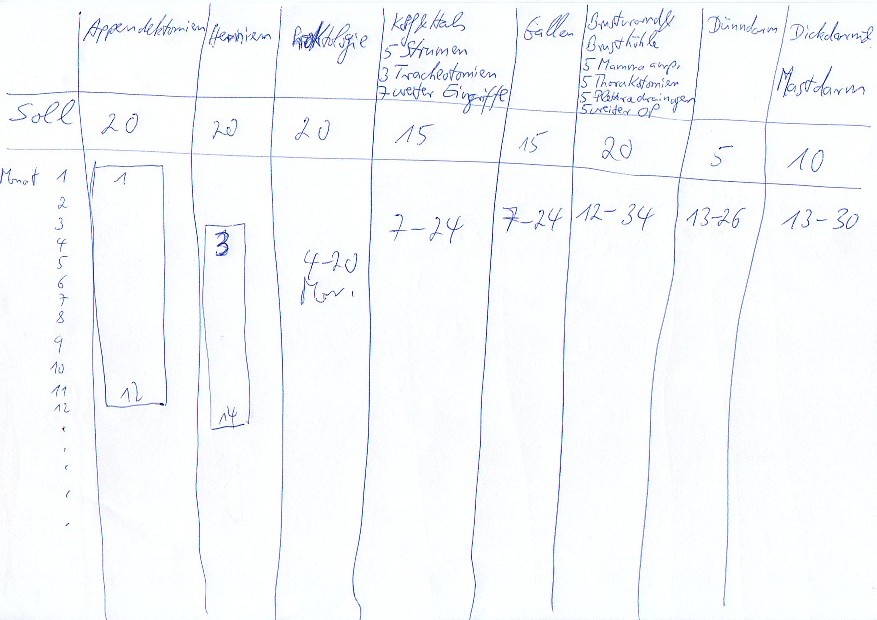 Appendektomien
Hernien
Proktologie
Kopf Hals
5 Strumen
3 Tracheotomien
7 weiter Eingriffe
Gallen
Brustwand
Brusthöhle
5 Mamma amp.
5 Thorakotomien
5 Pleuradrainagen
5 weiter OP
Dünndarm
Dickdarm
Mastdarm
Soll 20 20 20 15 15 20 5 10
Monat 1 1
2
3 3 7-24 7-24 12-34 13-26 13-30
4
5 4-20
6 Mon.
7
8
9
10
11 12
12 14